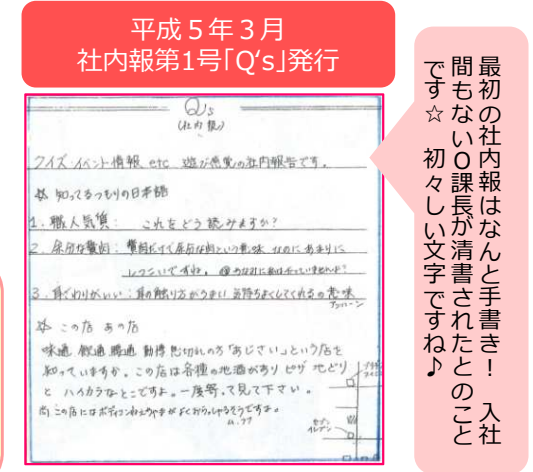 平成５年３月
社内報第1号｢Q‘s｣発行
Q's
(社内報)
クイズ・イベント情報 etc 遊び感覚の社内報告です。
知ってるつもりの日本語
1. 職人気質： これをどう読みますか?
2. 余分な贅肉： 贅肉だけで余分な肉という意味 なのに あまりに
しつこいですね。
3. 耳ざわりがいい： 耳の触り方がうまい 気持ちよくしてくれるの意味
アハーン
この店 あの店
味通 飲通 勤務先切れの方「あじさい」という店を
知っていますか。この店は各種の地酒があり ピザ 地どり
と ハイカラなとこですよ。一度寄って見て下さい。
セブン
イレブン
最初の社内報はなんと手書き！ 入社
間もないＯ課長が清書されたとのこと
です☆ 初々しい文字ですね♪